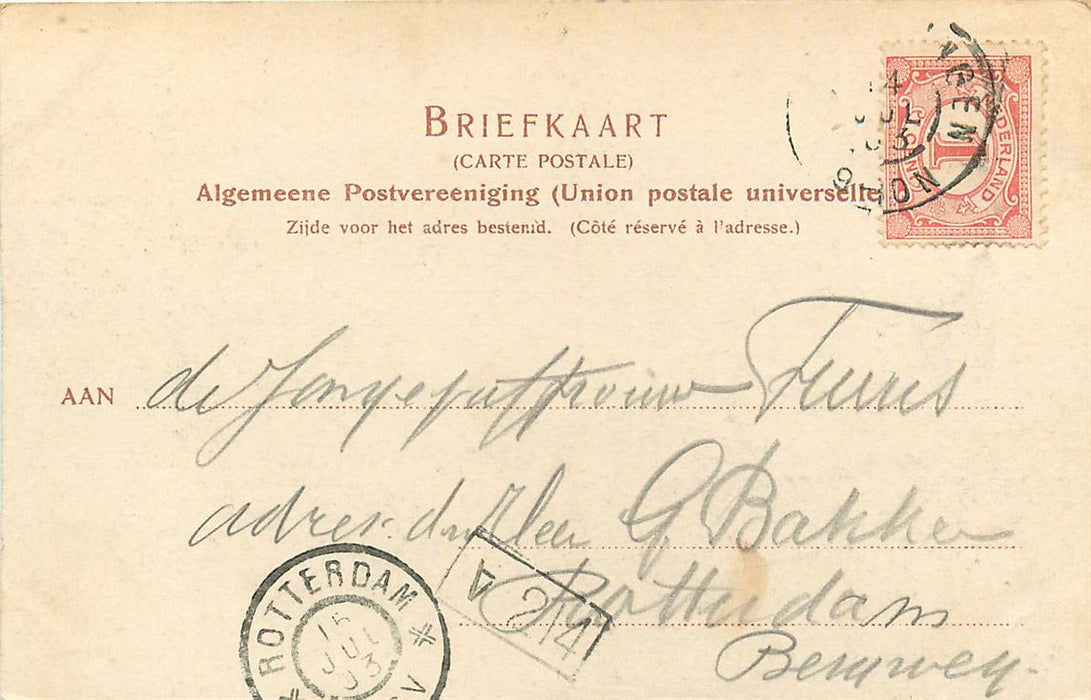 BRIEFKAART
(CARTE POSTALE)
Algemeene Postvereeniging (Union postale universelle)
Zijde voor het adres bestemd. (Côté réservé à l'adresse.)
NEDERLAND
1
14
JUL
03
AAN de Jongejuffrouw
adres: den Heer G Bakker
Rotterdam
Bergweg.
ROTTERDAM
15
JUL
03